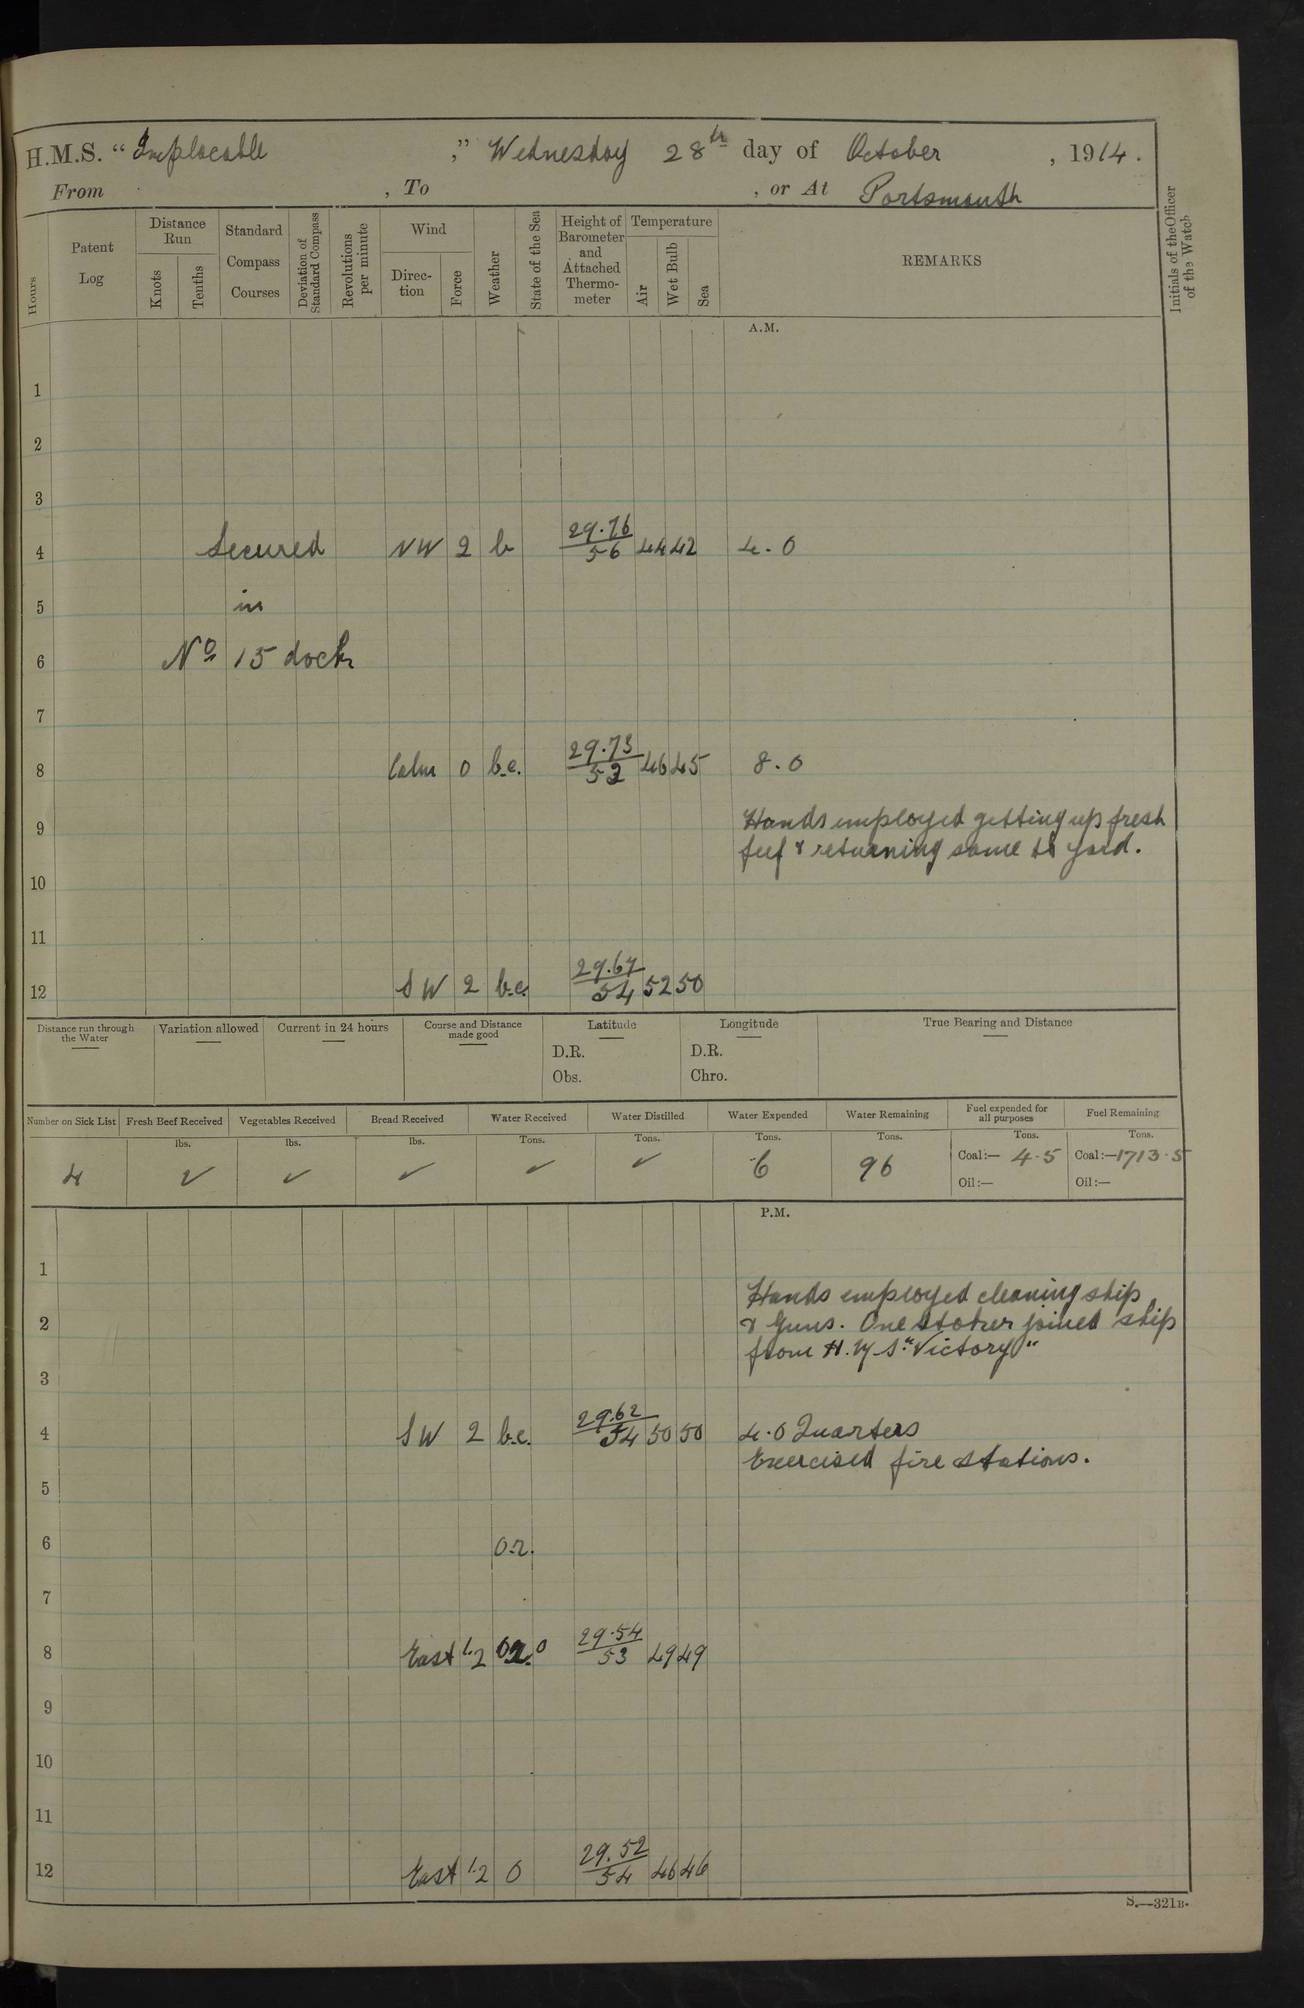 H.M.S. "Implacable ," Wednesday 28th day of October , 1914.
From , To , or At Portsmouth
Hours
Patent Log
Distance Run
Knots
Tenths
Standard Compass Courses
Deviation of Standard Compass
Revolutions per minute
Wind
Direction
Force
Weather
State of the Sea
Height of Barometer and Attached Thermometer
Temperature
Air
Wet Bulb
Sea
REMARKS
Initials of the Officer of the Watch
A.M.
1
2
3
4 Secured NW 2 b 29.76 56 44 42 4.0
5 in
6 No 15 dock
7
8 Calm 0 b.c. 29.73 52 46 45 8.0
9 Hands employed getting up fresh
beef & returning same to yard.
10
11
12 SW 2 b.c. 29.67 54 52 50
Distance run through the Water
Variation allowed
Current in 24 hours
Course and Distance made good
Latitude
D.R.
Obs.
Longitude
D.R.
Chro.
True Bearing and Distance
Number on Sick List Fresh Beef Received Vegetables Received Bread Received Water Received Water Distilled Water Expended Water Remaining Fuel expended for all purposes Fuel Remaining
lbs. lbs. lbs. Tons. Tons. Tons. Tons. Tons. Tons.
4 ✓ ✓ ✓ ✓ ✓ 6 96 Coal:— 4.5 Coal:—1713.5
Oil:— Oil:—
P.M.
1
Hands employed cleaning ship
2 & Guns. One stoker joined ship
from H.M.S. "Victory"
3
4 SW 2 b.c. 29.62 54 50 50 4.0 Quarters
Exercised fire stations.
5
6 o.r.
7
8 East 1.2 o.r. 0 29.54 53 49 49
9
10
11
12 East 1.2 0 29.52 54 46 46
S.—321B.